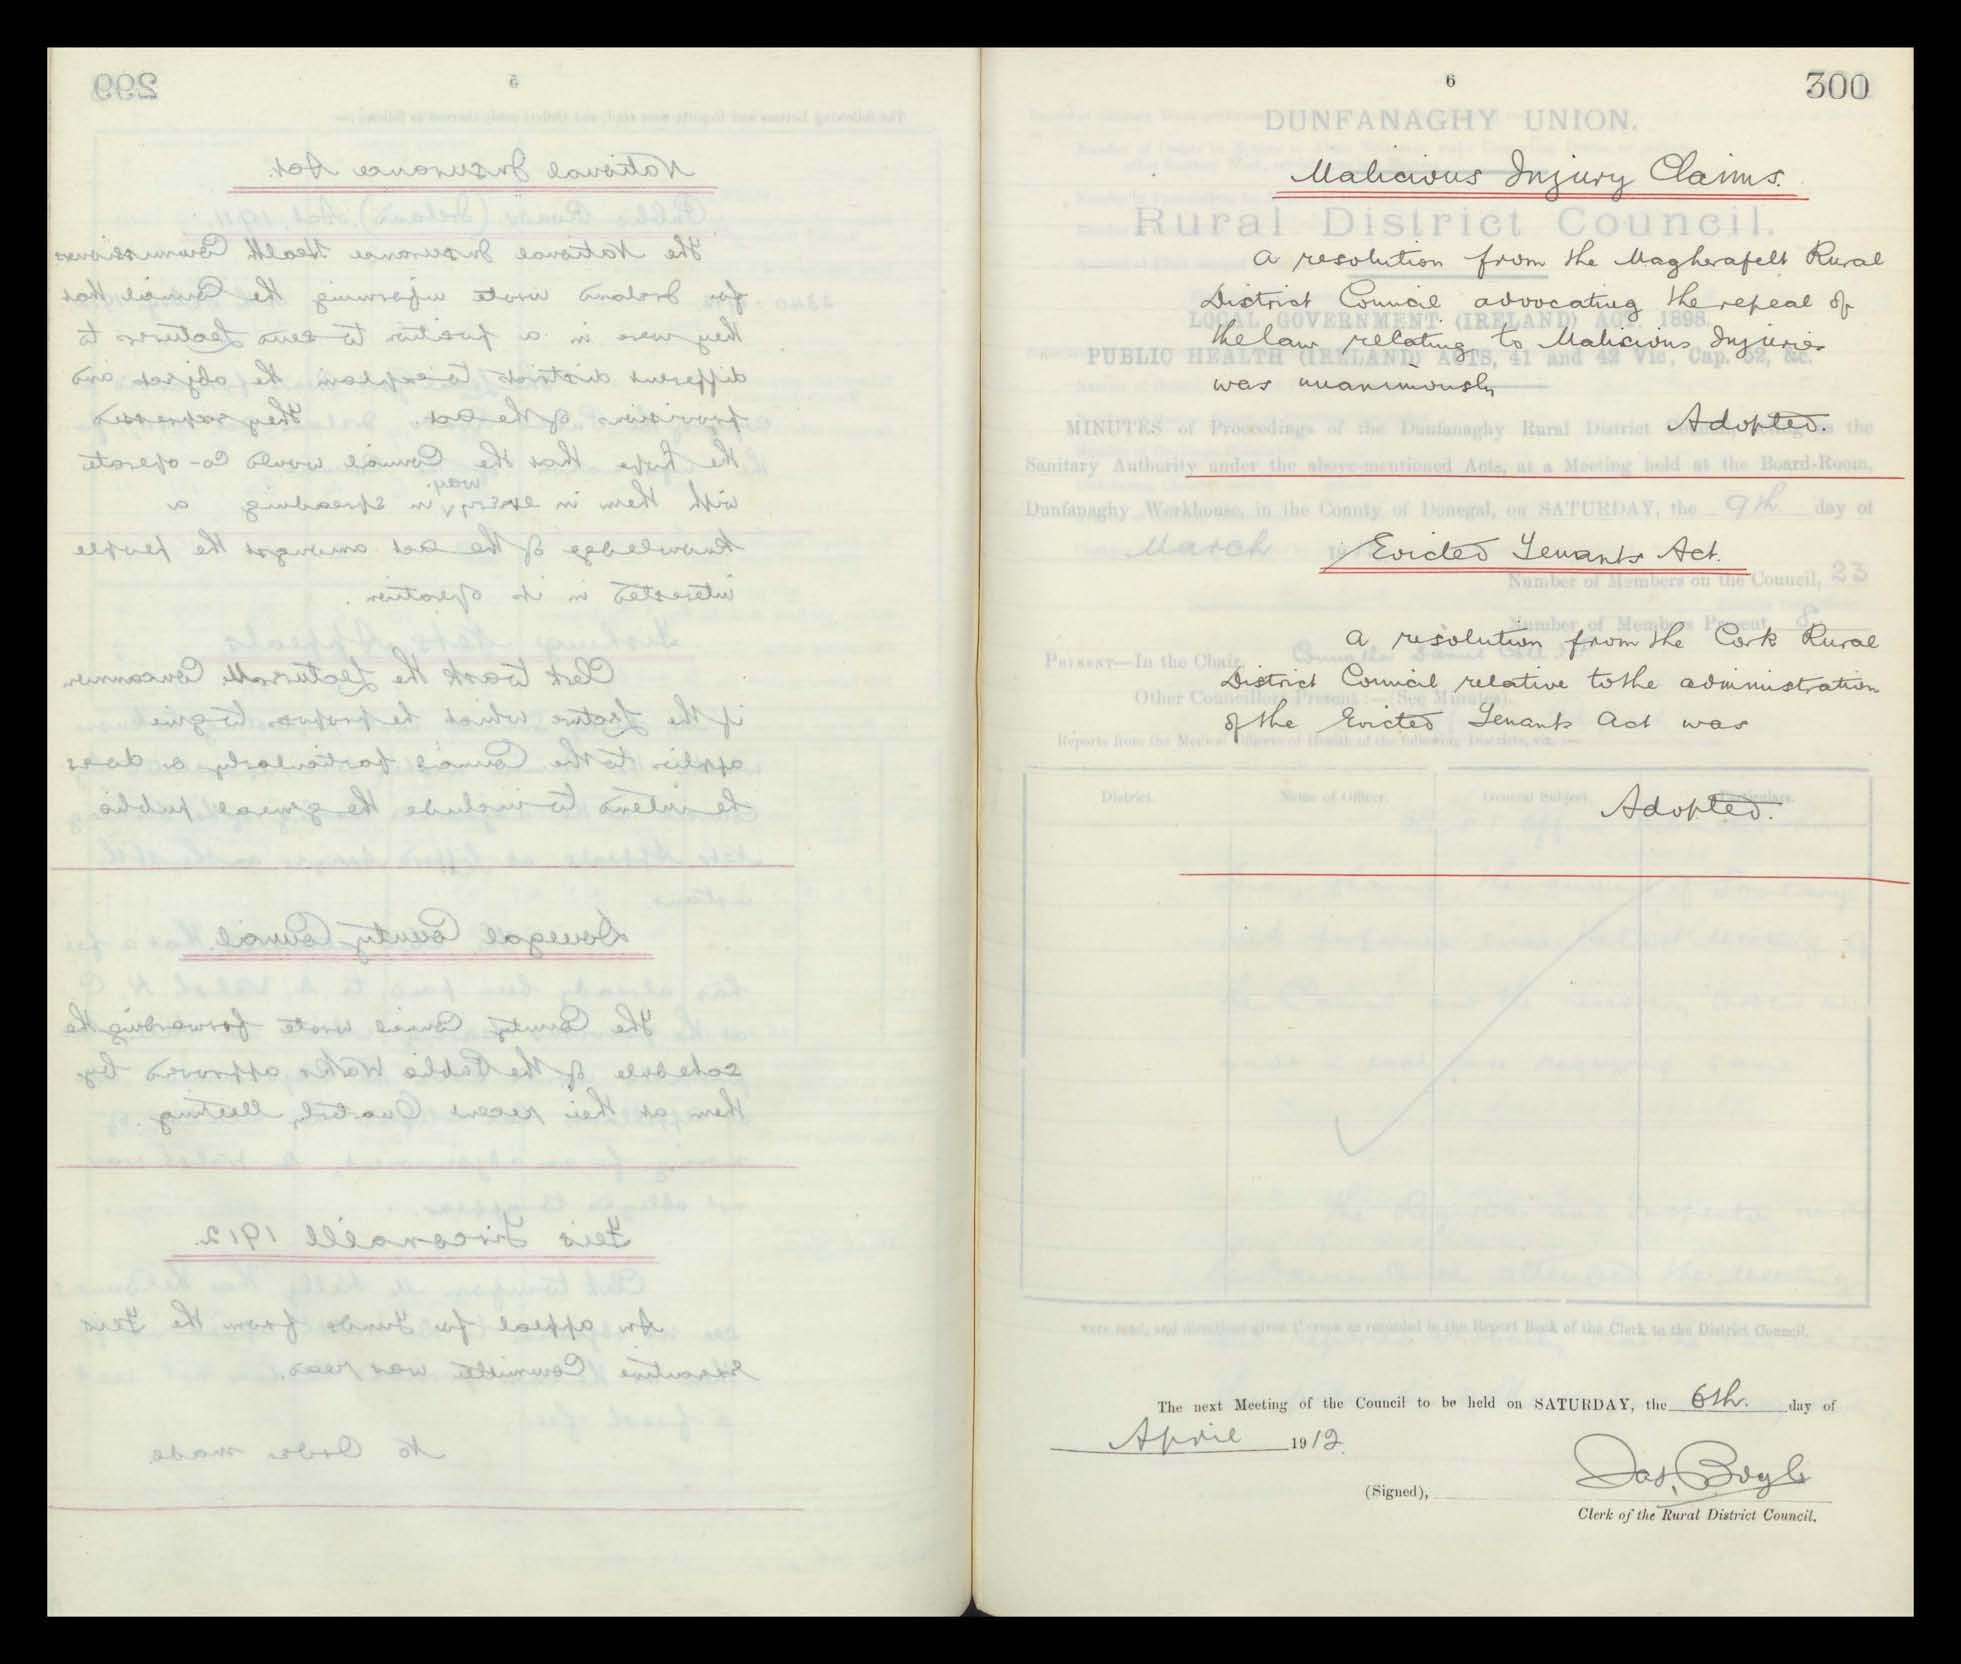 299
5
National Insurance Act.
The National Insurance Health Commissioners
for Ireland wrote informing the Council that
they were in a position to send Lecturers to
different districts to explain the objects and
provisions of the act. They expressed
the hope that the Council would co-operate
with them in every way in spreading a
knowledge of the act amongst the people
interested in its operation.
Clerk to ask the Lecturer Mr Concannon
if the Lecture which he proposes to give
applies to the Councils particularly or does
he intend to include the general public
Donegal County Council.
The County Council wrote forwarding the
schedule of the Public Works approved by
them at their recent Quarterly Meeting.
Feis Tirconaill 1912.
An appeal for Funds from the Feis
Executive Committee was read.
No Order made
6
300
DUNFANAGHY UNION.
Malicious Injury Claims.
Rural District Council.
A resolution from the Magherafelt Rural
District Council advocating the repeal of
LOCAL GOVERNMENT (IRELAND) ACT, 1898.
the law relating to Malicious Injuries
PUBLIC HEALTH (IRELAND) ACTS, 41 and 42 Vic, Cap. 52, &c.
was unanimously
Adopted.
MINUTES of Proceedings of the Dunfanaghy Rural District the
Sanitary Authority under the above-mentioned Acts, at a Meeting held at the Board-Room,
Dunfanaghy Workhouse, in the County of Donegal, on SATURDAY, the 9th day of
March 19
Evicted Tenants Act.
Number of Members on the Council, 23
Number of Members Present, 8
A resolution from the Cork Rural
PRESENT—In the Chair,
District Council relative to the administration
Other Councillors Present:—(See Minutes).
of the Evicted Tenants Act was
Reports from the Medical Officers of Health of the following Districts, viz.:—
District. Name of Officer. General Subject. Particulars.
Adopted.
were read, and directions given thereon as recorded in the Report Book of the Clerk to the District Council.
The next Meeting of the Council to be held on SATURDAY, the 6th. day of
April 1912.
(Signed), Jas. Boyle
Clerk of the Rural District Council.